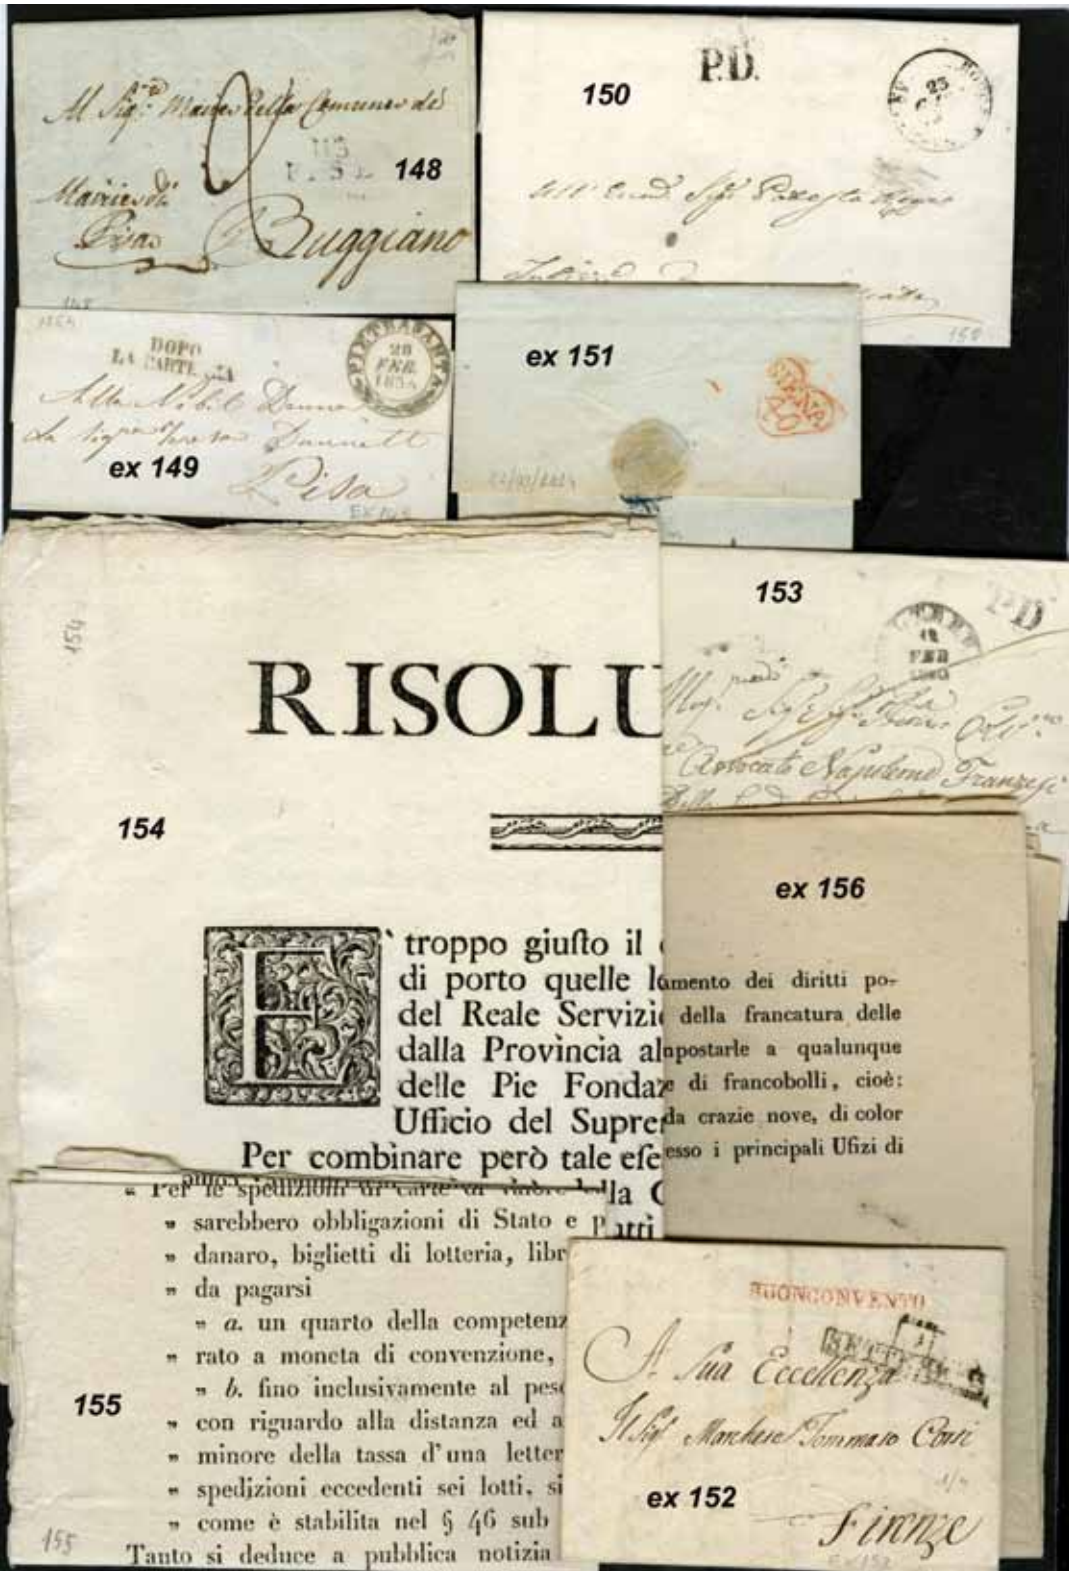 Al Sig.r Maire della Comune di
113
PISE
148
Mairie di
Pisa
Buggiano
148
P.D.
150
23
All'
Sig.
150
1854
DOPO
LA PARTENZA
PIETRASANTA
28
FEB.
1854
Alla Nobil Donna
La Sig.ra Teresa
ex 149
Pisa
EX 149
ex 151
SIENA
153
P.D
12
FEB
Sig
Avvocato Napoleone Franzesi
154
RISOLU
154
ex 156
E` troppo giuſto il
di porto quelle le
del Reale Servizi
dalla Provincia al
delle Pie Fondaz
Ufficio del Supre
Per combinare però tale eſe
lla C
amento dei diritti po-
della francatura delle
apostarle a qualunque
e di francobolli, cioè:
da crazie nove, di color
esso i principali Ufizi di
„ Per le spedizioni di carte di
„ sarebbero obbligazioni di Stato e p
„ danaro, biglietti di lotteria, libr
„ da pagarsi
„ a. un quarto della competenz
„ rato a moneta di convenzione,
„ b. fino inclusivamente al pes
„ con riguardo alla distanza ed a
„ minore della tassa d'una letter
„ spedizioni eccedenti sei lotti, si
„ come è stabilita nel § 46 sub
Tanto si deduce a pubblica notizia
155
155
BUONCONVENTO
SETTEMB
A Sua Eccellenza
Il Sig.r Marchese Tommaso Corsi
ex 152
Firenze
Ex 152